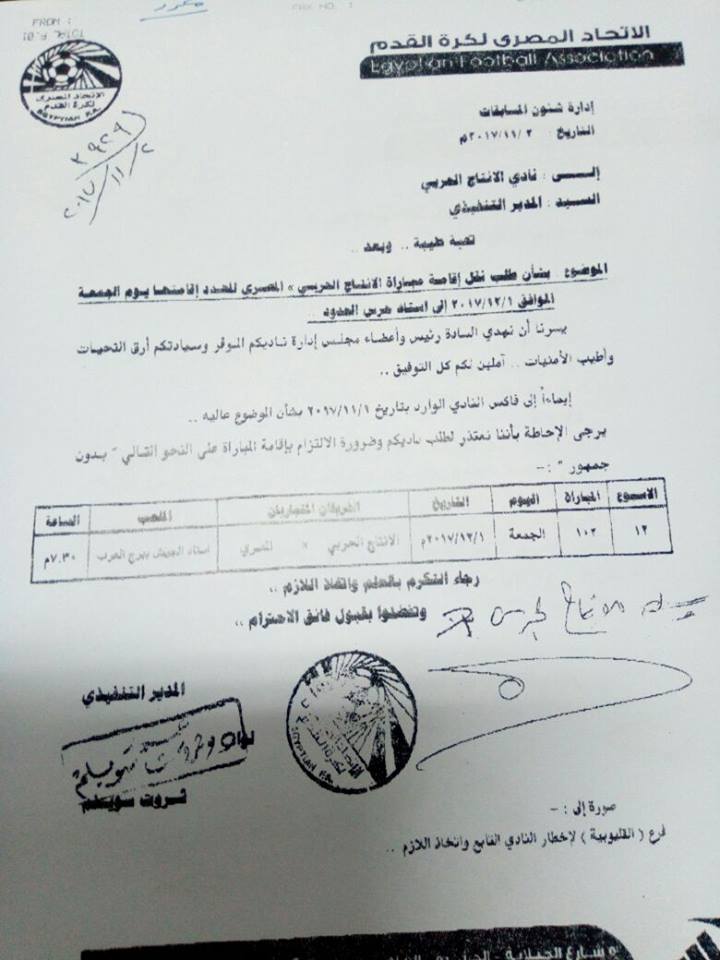 FROM :
FAX NO. :
الاتحاد المصرى لكرة القدم
Egyptian Football Association
الاتحاد المصرى
لكرة القدم
EGYPTIAN F.A.
٢٠١٧/١١/٢
إدارة شئون المسابقات
التاريخ : ٢٠١٧/١١/٢م
إلـــى : نادي الانتاج الحربي
السيد : المدير التنفيذي
تحية طيبة .. وبعد ..
الموضوع : بشأن طلب نقل إقامة مباراة الانتاج الحربي × المصري المحدد إقامتها يوم الجمعة
الموافق ٢٠١٧/١٢/١ إلى استاد حرس الحدود ..
يسرنا أن نهدي السادة رئيس وأعضاء مجلس إدارة ناديكم الموقر وسيادتكم أرق التحيات
وأطيب الأمنيات .. آملين لكم كل التوفيق ..
إيماءاً إلى فاكس النادي الوارد بتاريخ ٢٠١٧/١١/١ بشأن الموضوع عاليه ..
يرجى الإحاطة بأننا نعتذر لطلب ناديكم وضرورة الالتزام بإقامة المباراة على النحو التالي " بدون
جمهور " : -
الاسبوع المباراة اليوم التاريخ الفريقان المتباريان الملعب الساعة
١٢ ١٠٢ الجمعة ٢٠١٧/١٢/١م الانتاج الحربي × المصري استاد الجيش ببرج العرب ٧.٣٠م
رجاء التكرم بالعلم واتخاذ اللازم ،،
وتفضلوا بقبول فائق الاحترام ،،
المدير التنفيذي
ثروت سويلم
EGYPTIAN F.A.
ثروت سويلم
صورة إلى : -
فرع ( القليوبية ) لإخطار النادي التابع واتخاذ اللازم ..